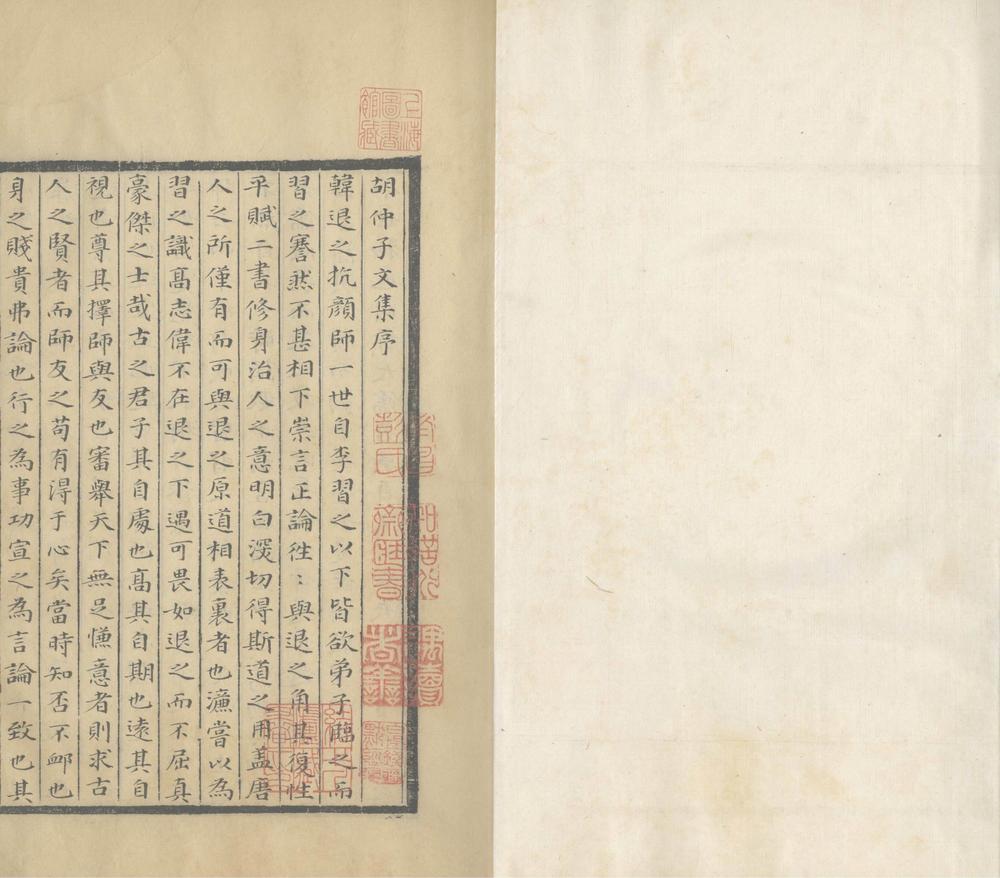 胡仲子文集序
韓退之抗顔師一世自李習之以下皆欲弟子臨之而
習之謇然不甚相下崇言正論徃〻與退之角其復性
平賦二書修身治人之意明白深切得斯道之用盖唐
人之所僅有而可與退之原道相表裏者也濂嘗以為
習之識髙志偉不在退之下遇可畏如退之而不屈真
豪傑之士哉古之君子其自處也髙其自期也遠其自
視也尊其擇師與友也審舉天下無足慊意者則求古
人之賢者而師友之苟有得于心矣當時知否不䘏也
身之賤貴弗論也行之為事功宣之為言論一致也其
上海圖書館藏